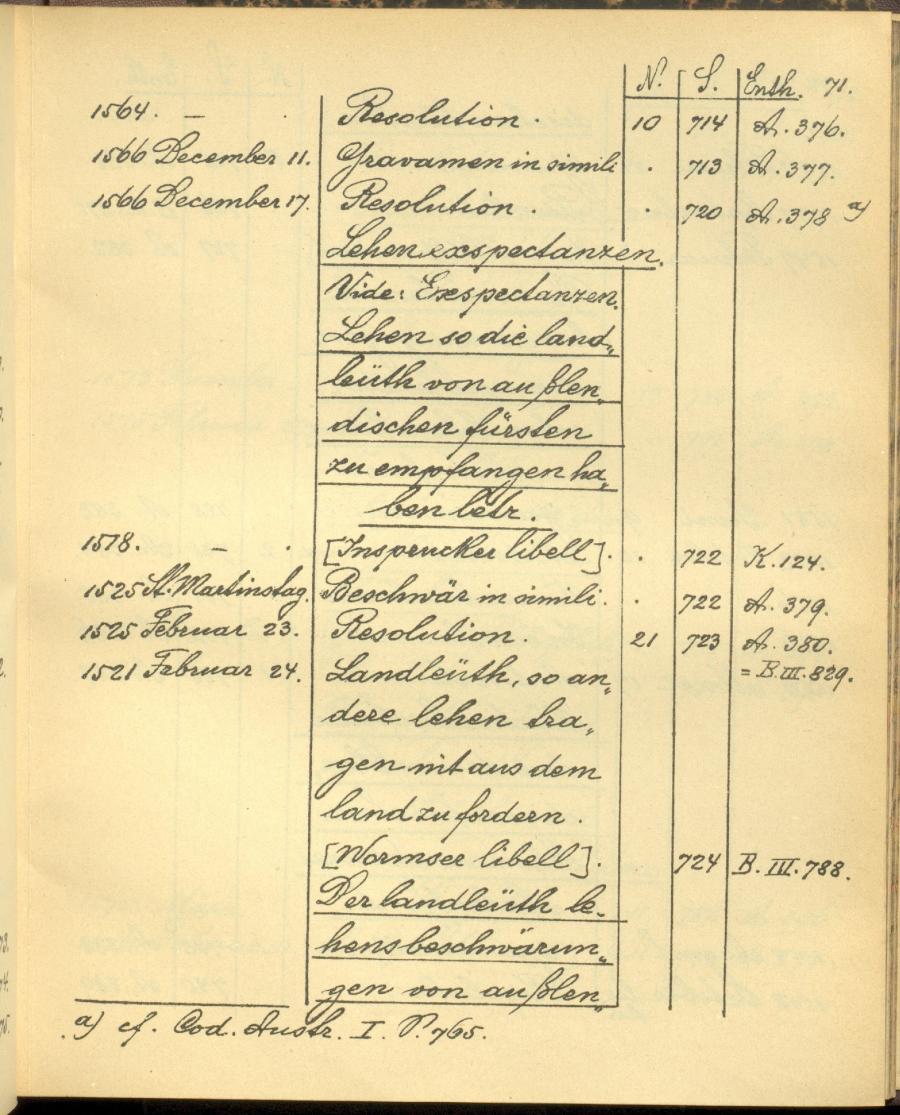 N. S. Enth. 71.
1564. — . Resolution . 10 714 A. 376.
1566 December 11. Gravamen in simili . 713 A. 377.
1566 December 17. Resolution . . 720 A. 378 a)
Lehen exspectanzen.
Vide: Exspectanzen.
Lehen so die land„
leüth von außlen„
dischen fürsten
zu empfangen ha„
ben betr.
1518. — . [Insprucker libell]. . 722 K. 124.
1525 St. Martinstag. Beschwär in simili. . 722 A. 379.
1525 Februar 23. Resolution . 21 723 A. 380.
= B. III. 829.
1521 Februar 24. Landleüth, so an„
dere lehen tra„
gen nit aus dem
land zu fordern .
[Wormser libell]. 724 B. III. 788.
Der landleüth le„
hensbeschwärun„
gen von außlen„
a) cf. Cod. Austr. I. P. 765.